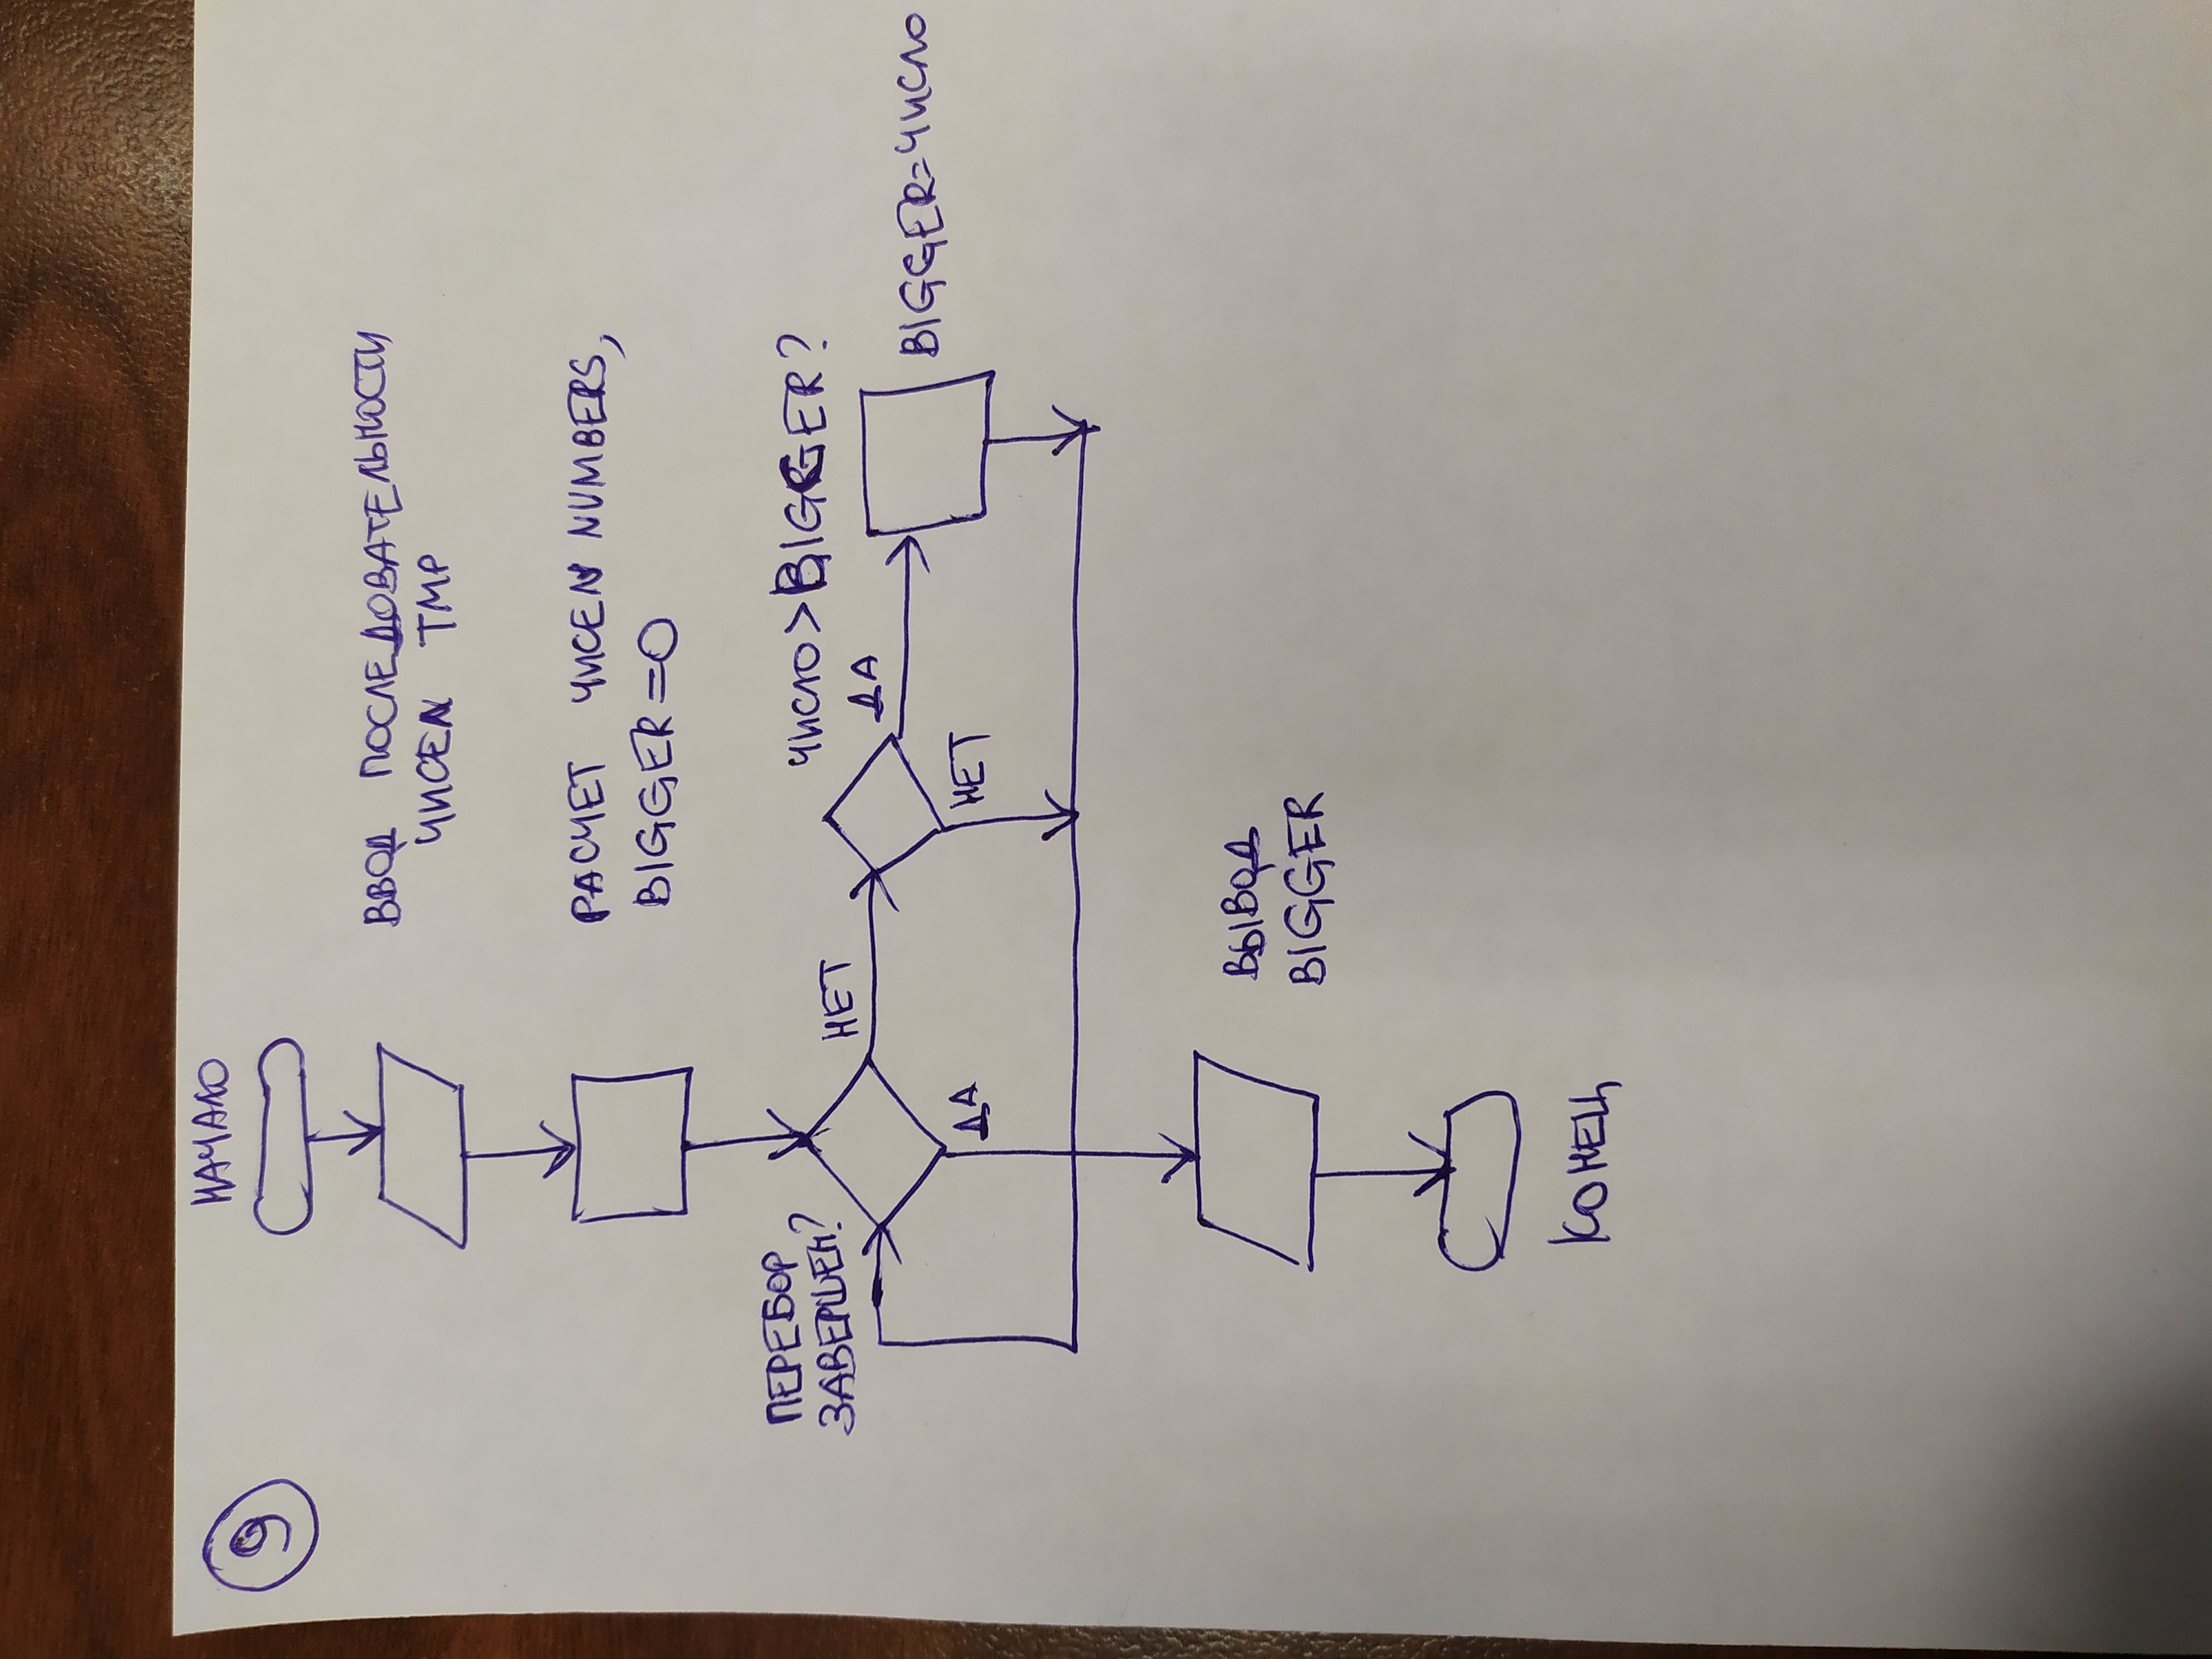 9
НАЧАЛО
ВВОД ПОСЛЕДОВАТЕЛЬНОСТИ
ЧИСЕЛ TMP
РАСЧЕТ ЧИСЕЛ NUMBERS,
BIGGER=0
ПЕРЕБОР
ЗАВЕРШЕН?
НЕТ
ЧИСЛО>BIGGER?
ДА
BIGGER=ЧИСЛО
ДА
НЕТ
ВЫВОД
BIGGER
КОНЕЦ